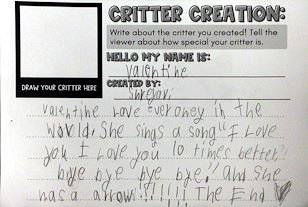 CRITTER CREATION:
Write about the critter you created! Tell the
viewer about how special your critter is.
HELLO MY NAME IS:
Valentine
CREATED BY:
Shregavi
DRAW YOUR CRITTER HERE
Valentine Love Everoney in the
World. She sings a song "I Love
you I Love you 10 times better"
bye bye bye bye!" and She
has a arrow!!!!!! The End